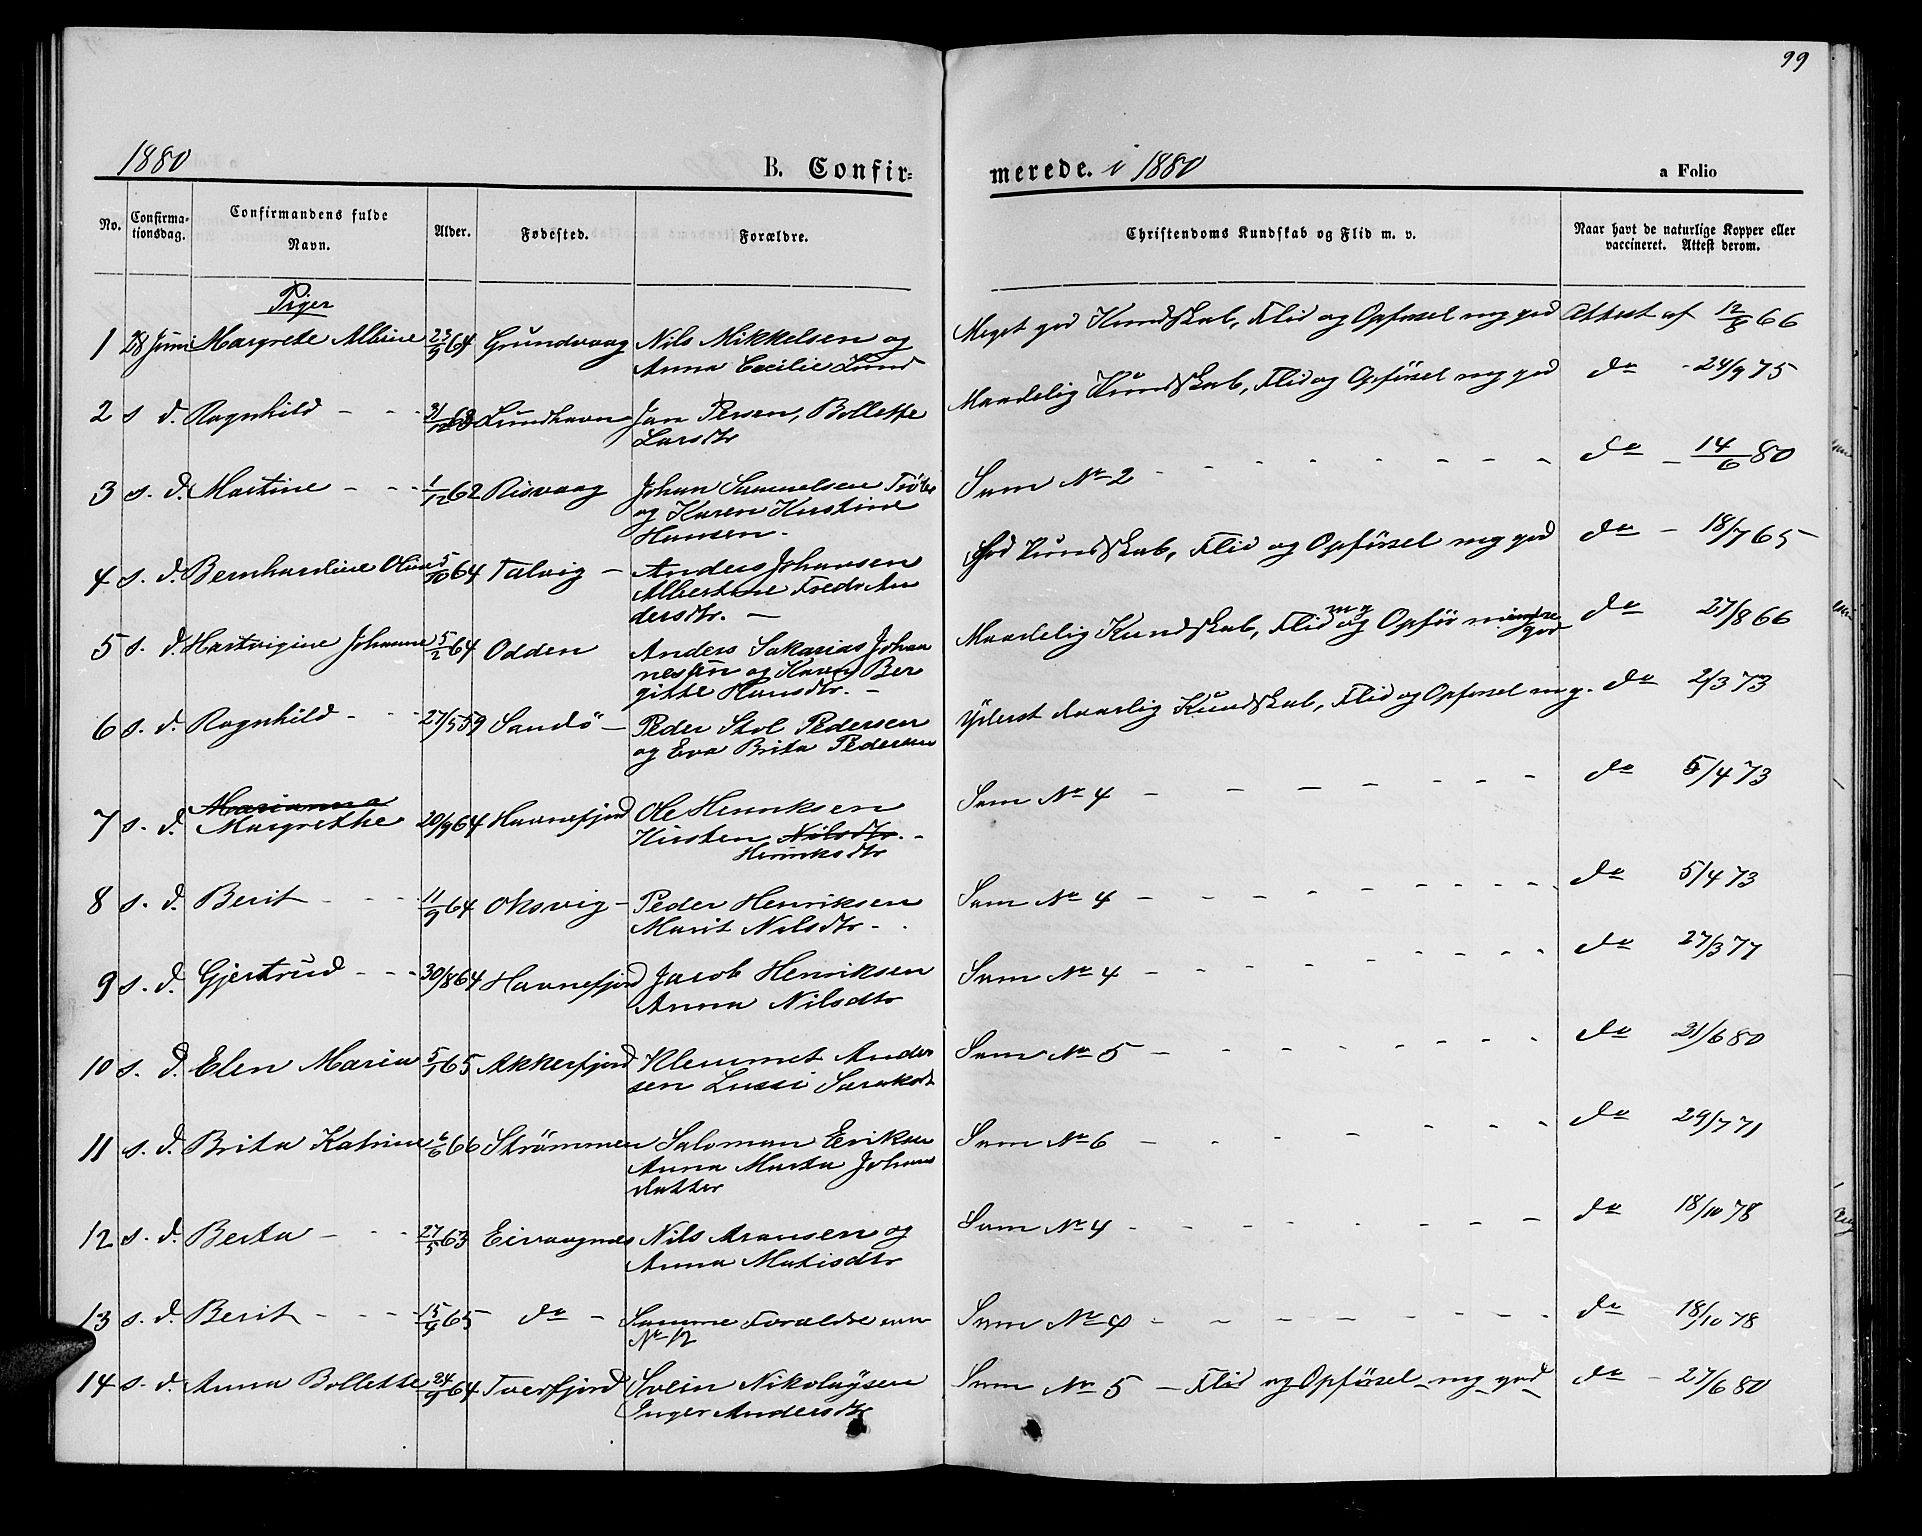 99
1880
B. Confir=
merede. i 1880
a Folio
No.
Confirma-
tionsdag.
Confirmandens fulde
Navn.
Alder.
Fødested.
Forældre.
Christendoms Kundskab og Flid m. v.
Naar havt de naturlige Kopper eller
vaccineret. Attest derom.
Piger
1 28 Juni Margrete Albine 23/9 64 Grundvaag Nils Mikkelsen og
Anna Cecilie Lund
Meget god Kundskab, Flid og Opførsel mg god Attest af 12/8 66
2 s d. Ragnhild - - 31/12 63 Lundhavn Jan Persen, Bollette
Larsdtr
Maadelig Kundskab, Flid og Opførsel mg god do - 24/9 75
3 s. d. Martine - - 1/12 62 Risvaag Johan Samuelsen
og Karen Kirstine
Hansen.
Som No 2 - - do - 14/6 80
4 s. d. Bernhardine Oline 5/10 64 Talvig - Anders Johansen
Albertine Fredr An
dersdtr. -
God Kundskab, Flid og Opførsel mg god do - 18/7 65
5 s. d. Hartvigine Johanne 5/2 64 Odden Anders Sakarias Johan
nessen og Karen Ber
gitte Hansdtr. -
Maadelig Kundskab, Flid mg og Opfør mindre god do 27/8 66
6 s. d. Ragnhild - - 27/5 59 Sandö - Peder Stol Pedersen
og Eva Brita Pedersen
Yderst daarlig Kundskab, Flid og Opførsel mg. do 2/3 73
7 s. d. Marianna
Margrethe 20/9 64 Havnefjord Ole Henriksen
Kirsten Nilsdtr. -
Henriksdtr
Som No 4 - - do 5/4 73
8 s. d. Berit - - 11/9 64 Oksvig - Peder Henriksen
Marit Nilsdtr -
Som No 4 - - do 5/4 73
9 s. d. Gjertrud - - 30/8 64 Havnefjord Jacob Henriksen
Anna Nilsdtr
Som No 4 - - do 27/3 77
10 s. d. Elen Maria 5/1 65 Akkerfjord Klemmet Ander
sen Lussi Sarakdt
Som No 5 - - do 21/6 80
11 s. d. Brita Katrine 6/6 66 Strömmen Saloman Eriksen
Anna Marta Johans
datter
Som No 6 - - do 29/7 71
12 s. d. Berta - - 27/5 63 Eirvaagnes Nils Aronsen og
Anna Matisdtr
Som No 4 - - do 18/10 78
13 s. d. Berit - - 15/4 65 do - Samme Forældre som
No 12
Som No 4 - - do 18/10 78
14 s. d. Anna Bollette 24/9 64 Tverfjord Svein Nikolaysen
Inger Andersdtr
Som No 5 - Flid og Opførsel mg god do - 27/6 80